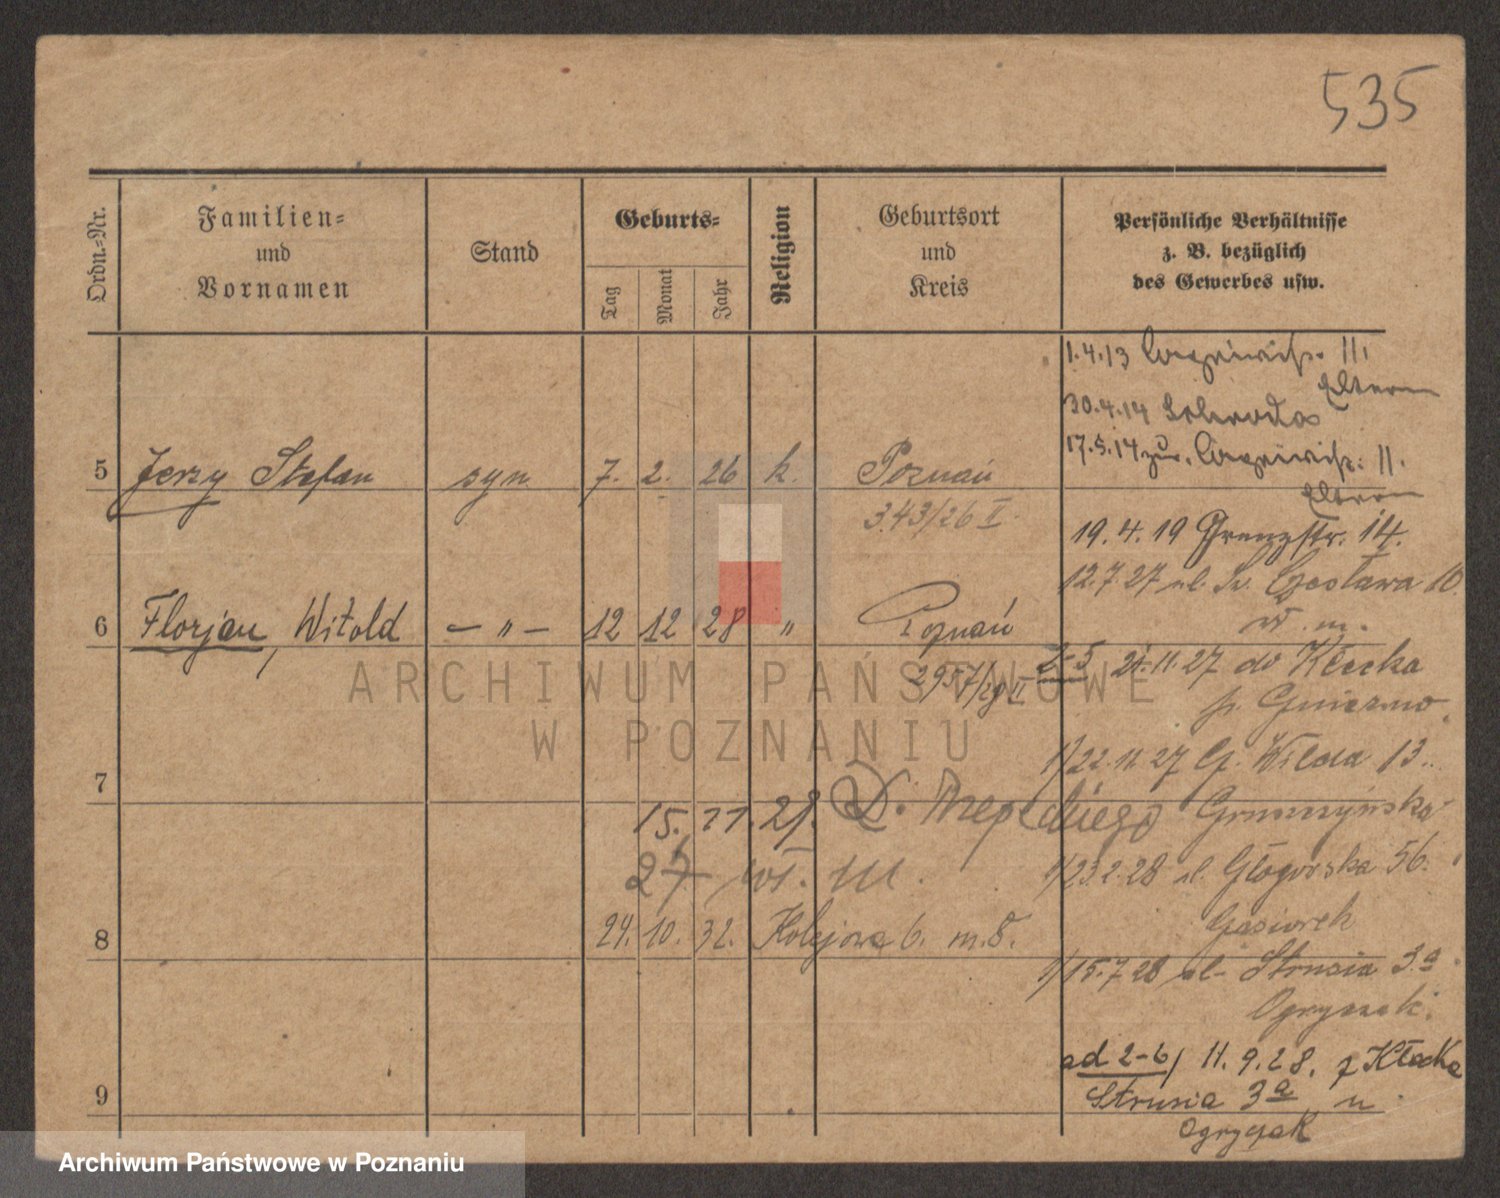 535
Ordn.-Nr.
Familien-
und
Vornamen
Stand
Geburts-
Tag
Monat
Jahr
Religion
Geburtsort
und
Kreis
Persönliche Verhältnisse
z. B. bezüglich
des Gewerbes usw.
1.4.13 II.
Eltern
30.4.14 Schroda
17.5.14 zur. II.
Eltern
5 Jerzy Stefan syn 7. 2. 26 k. Poznań
3.43/26 I
19.4.19 Grenzstr. 14.
12.7.27 ul. Św. Czesława 10
w. m.
6 Florjan, Witold — " — 12 12 28 " Poznań
2957/28 II
2-5 21.11.27 do Kłecka
p. Gniezno
1/22.11.27 G. Wilda 13.
7
15. 11. 28. D.
27 wł. m.
1/23.2.28 ul. Głogowska 56.
Gąsiorek
8 24. 10. 32. Kolejowa 6. m. 8.
1/15.7.28 ul. Strusia 3a
Ogryczak.
ad 2-6/ 11.9.28. z Kłecka
Strusia 3a u
Ogryczak
9
ARCHIWUM PAŃSTWOWE
W POZNANIU
Archiwum Państwowe w Poznaniu